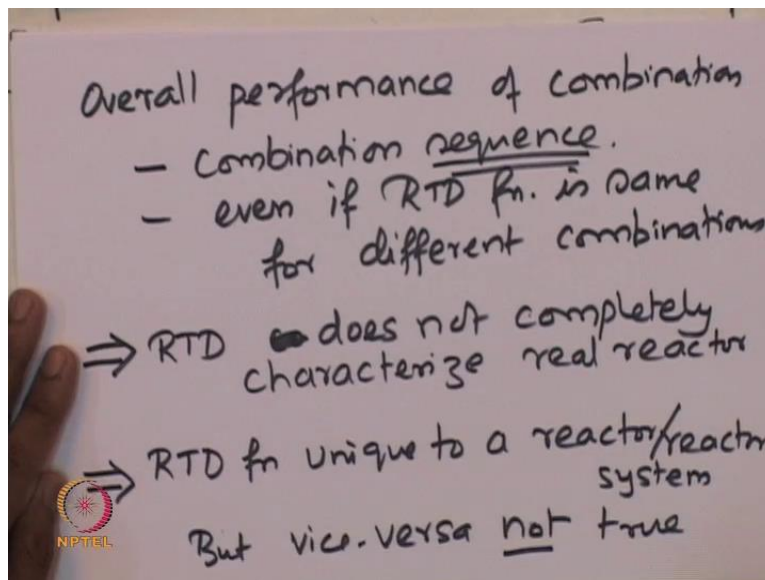 Overall performance of combination
- Combination sequence.
- even if RTD fn. is same
for different combinations
⇒ RTD does not completely
characterize real reactor
⇒ RTD fn unique to a reactor/reactor
system
But vice-versa not true
NPTEL